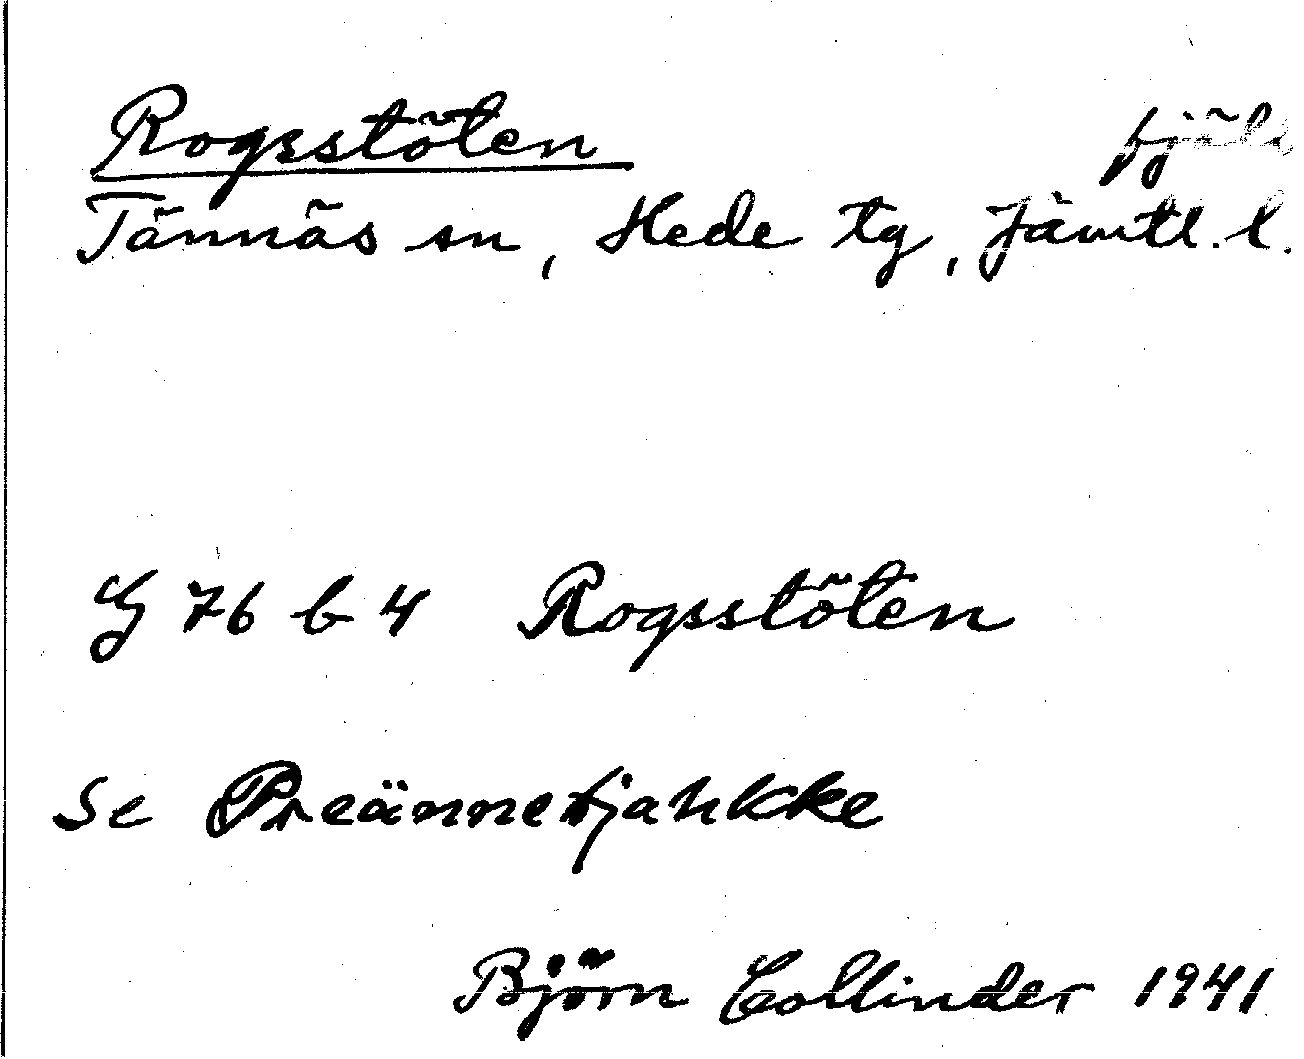 Rogsstöten fjäll
Tännäs sn, Hede tg, Jämtl. l.
G 76 b 4 Rogsstöten
Se Preännetjahkke
Björn Collinder 1941